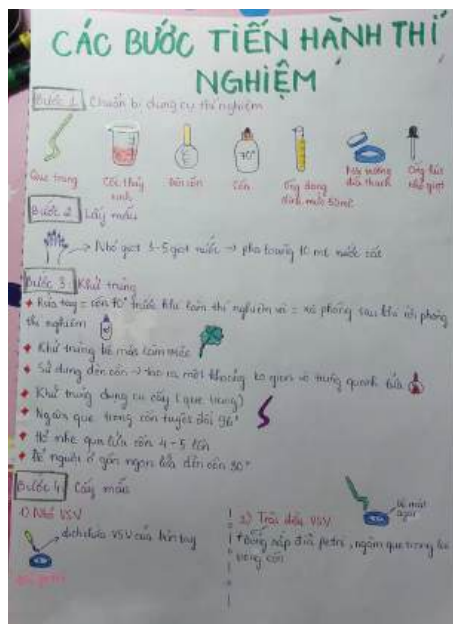 CÁC BƯỚC TIẾN HÀNH THÍ
NGHIỆM
Bước 1: Chuẩn bị dụng cụ thí nghiệm
70°
Que trang Cốc thủy tinh Đèn cồn Cồn Ống đong định mức 50ml đĩa thạch Ống hút nhỏ giọt
Bước 2: Lấy mẫu
→ Nhỏ giọt 3-5 giọt nước → pha loãng 10 ml nước cất
Bước 3: Khử trùng
+ Rửa tay = cồn 70° trước khi làm thí nghiệm và = xà phòng sau khi rời phòng
thí nghiệm
+ Khử trùng bề mặt làm việc
+ Sử dụng đèn cồn → tạo ra một khoảng ko gian vô trùng quanh lửa
+ Khử trùng dụng cụ cấy (que trang)
+ Ngâm que trong cồn tuyệt đối 96°
+ Hơ nhẹ qua lửa cồn 4-5 lần
+ Để nguội ở gần ngọn lửa đèn cồn 30°
Bước 4: Cấy mẫu
1) Nhỏ VSV
dịch chứa VSV của bàn tay
2) Trải đều VSV
bề mặt
agar
+ Đóng nắp đĩa petri, ngâm que trang lại
trong cồn